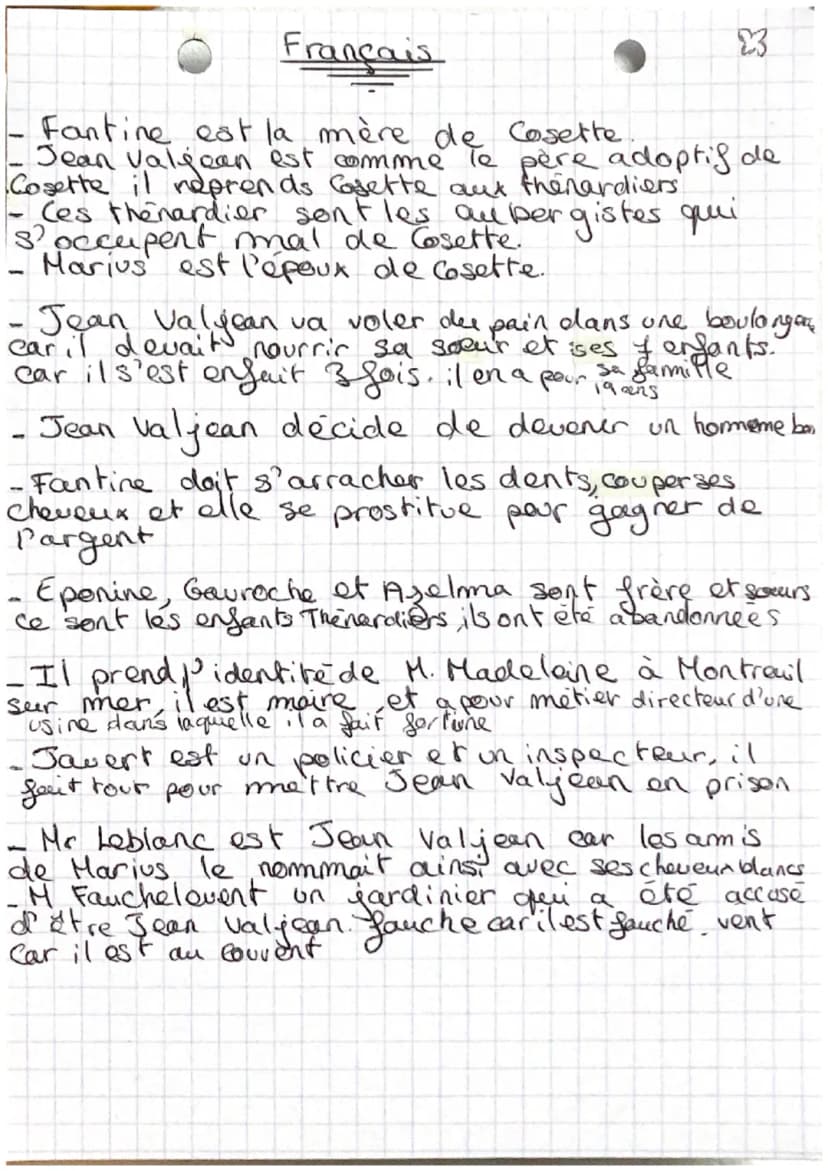 Français
- Fantine est la mère de Cosette.
- Jean Valjean est comme le père adoptif de
Cosette il reprends Cosette aux thénardiers
- Ces thénardier sont les aubergistes qui
s'occupent mal de Cosette.
- Marius est l'époux de Cosette.
- Jean Valjean va voler du pain dans une
car il devait nourrir sa sœur et ses 7 enfants.
car il s'est enfuit 3 fois. il en a pour sa famille
19 ans
- Jean Valjean décide de devenir un hommeme bon
- Fantine doit s'arracher les dents, couper ses
cheveux et elle se prostitue pour gagner de
l'argent
- Eponine, Gavroche et Azelma sont frère et sœurs
ce sont les enfants Thénardiers, ils ont été abandonnées
- Il prend l'identité de M. Madeleine à Montreuil
sur mer, il est maire, et a pour métier directeur d'une
usine dans laquelle il a fait fortune
- Javert est un policier et un inspecteur, il
fait tout pour mettre Jean Valjean en prison
- Mr Leblanc est Jean Valjean car les amis
de Marius le nommait ainsi avec ses cheveux blancs
- M Fauchelouent un jardinier qui a été accusé
d'être Jean Valjean. fauche car il est fauché. vent
Car il est au couvent